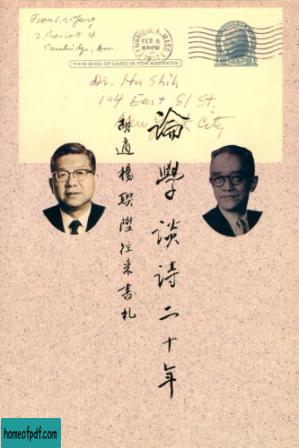 From L. S. Yang
Cambridge, Mass.
CAMBRIDGE, MASS.
FEB 6
THIS SIDE OF CARD IS FOR ADDRESS
Dr. Hu Shih
104 East 81 St.
New York City
論學談詩二十年
胡適楊聯陞往來書札
homeofpdf.com